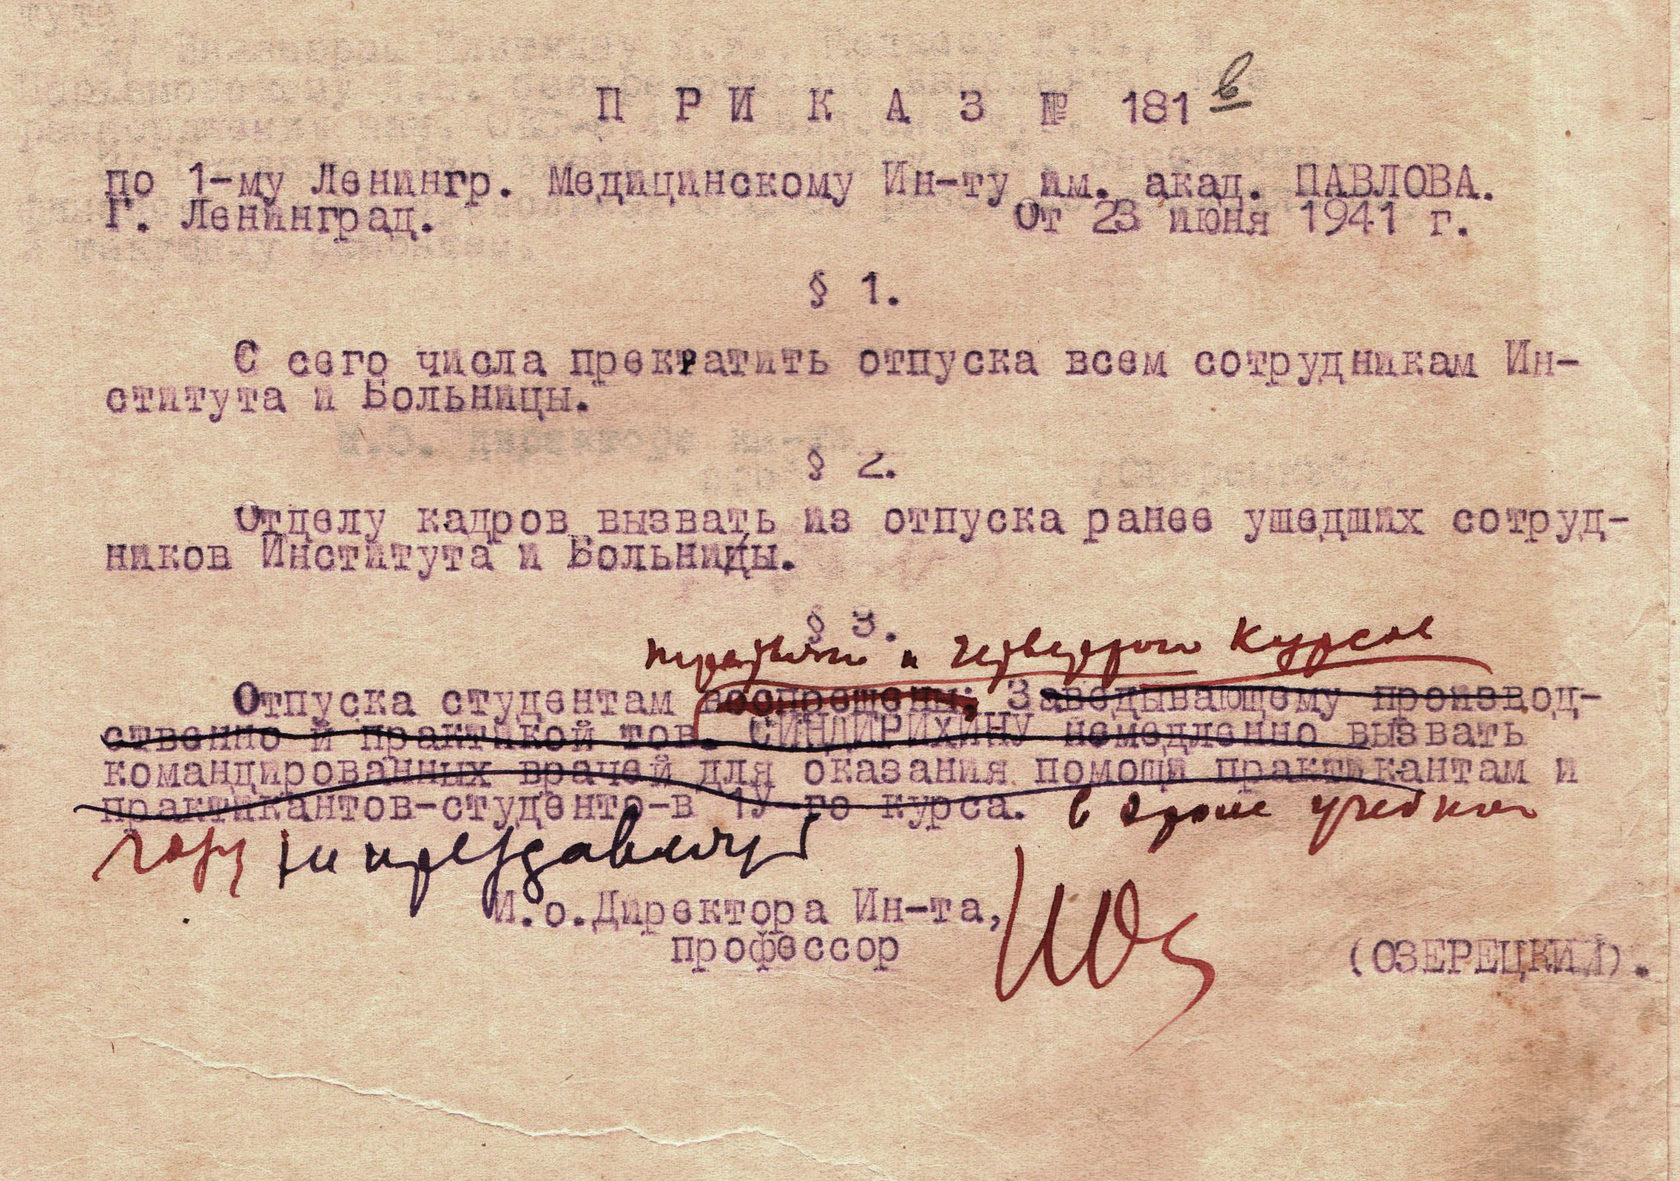 П Р И К А З № 181 в
по 1-му Ленингр. Медицинскому Ин-ту им. акад. ПАВЛОВА.
Г. Ленинград. От 23 июня 1941 г.
§ 1.
С сего числа прекратить отпуска всем сотрудникам Ин-
ститута и Больницы.
И.О. директора Ин-та
§ 2.
Отделу кадров вызвать из отпуска ранее ушедших сотруд-
ников Института и Больницы.
§ 3.
третьего и четвертого курсов
Отпуска студентам воспрещены; Заведывающему производ-
ственно й практикой тов. СИНДИРИХИНУ немедленно вызвать
командированных врачей для оказания помощи практикантам и
практикантов-студенто-в 1У-го курса. в этом учебном
году не предоставлять
И.о.Директора Ин-та,
профессор (ОЗЕРЕЦКИЙ).